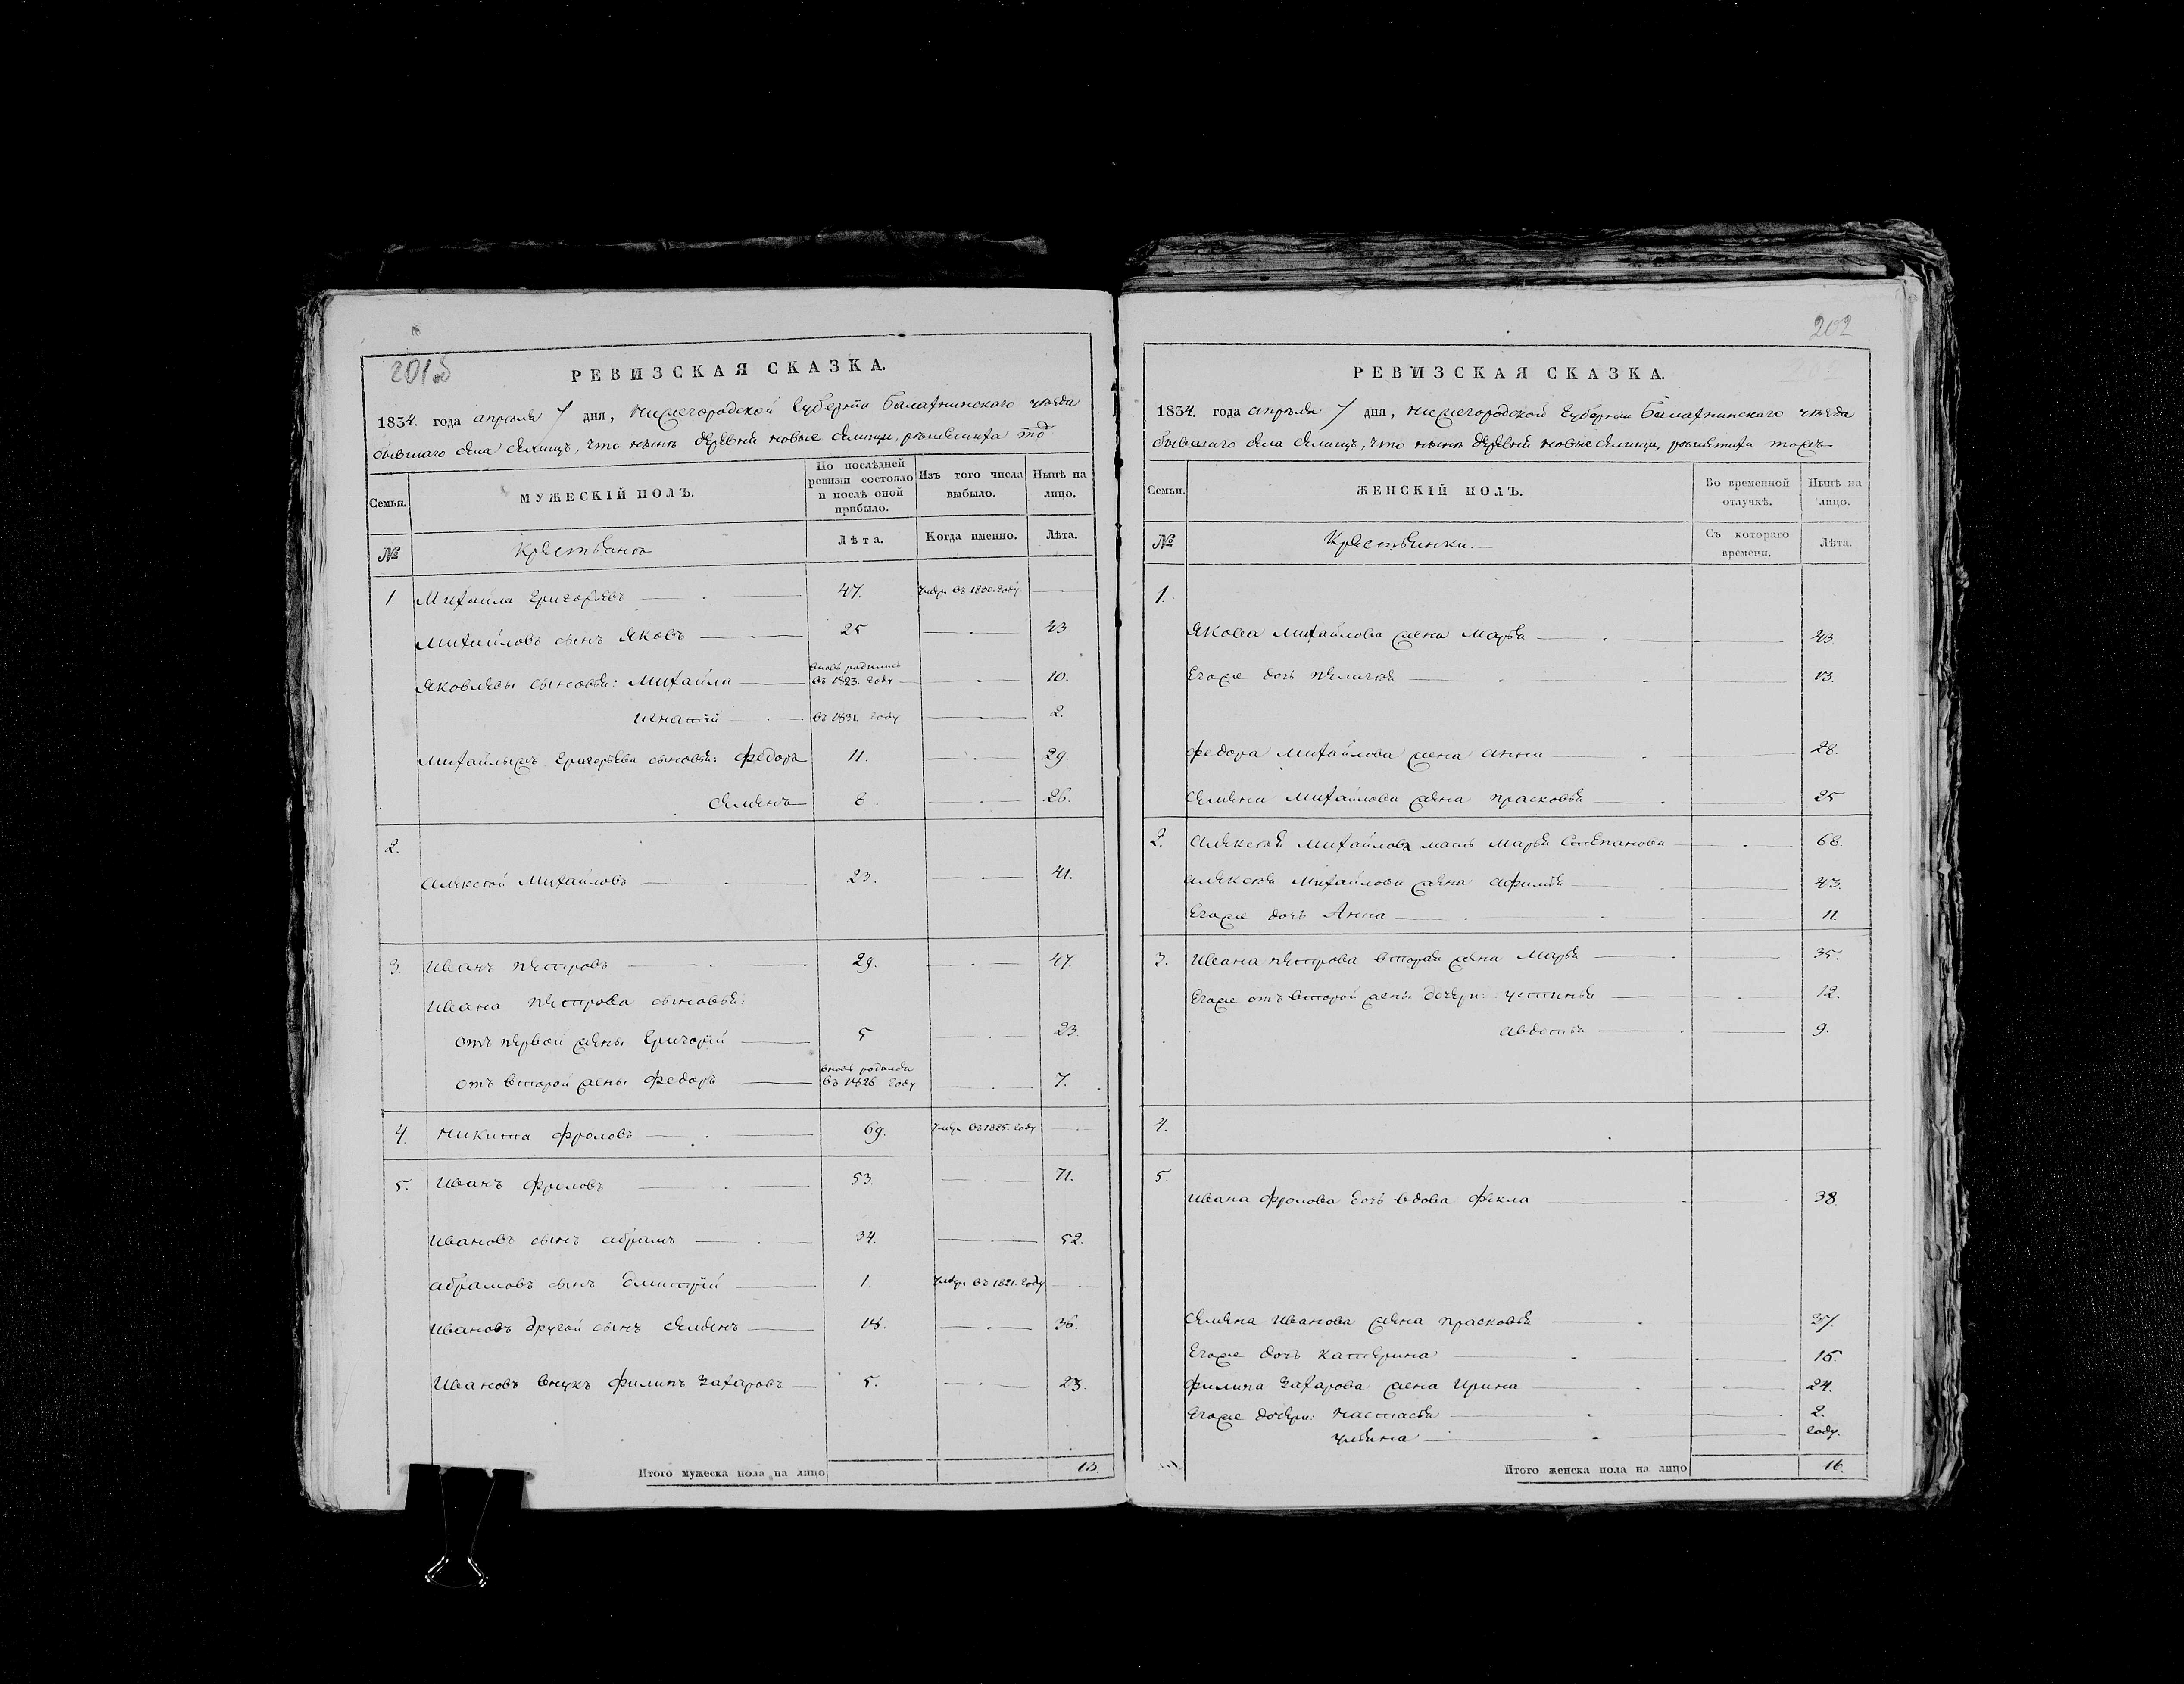 201об
РЕВИЗСКАЯ СКАЗКА.
1834. года апреля 7 дня, нижегородской Губернии Балахнинскаго уезда
бывшаго села селищъ, что ныне деревня новые селищи,
Семьи.
МУЖЕСКІЙ ПОЛЪ.
По послѣдней ревизіи состояло и послѣ оной прибыло.
Изъ того числа выбыло.
Нынѣ на лицо.
№
Крестьяне
Лѣта.
Когда именно.
Лѣта.
1. Михайла Григорьевъ 47. умре въ 1830. году
Михайловъ сынъ Яковъ 25 43
Яковлевы сыновья: Михайла вновь родились въ 1823. году 10.
игнатій въ 1831. году 2.
Григорьева сыновья: федоръ 11. 29
семенъ 8. 26.
2.
алексей Михайловъ 23. 41.
3. Иванъ петровъ 29. 47.
Ивана петрова сыновья:
отъ первой жены Григорій 5 23.
отъ второй жены Федоръ вновь родился въ 1826 году 7.
4. никита фроловъ 69. умре въ 1825. году
5. Иванъ фроловъ 53. 71.
Ивановъ сынъ абрамъ 34. 52.
абрамовъ сынъ Дмитрій 1. умре въ 1821. году
Ивановъ другой сынъ семенъ 18. 36.
Ивановъ внукъ филипъ Захаровъ 5. 23.
Итого мужеска пола на лицо 13.
202
РЕВИЗСКАЯ СКАЗКА.
1834. года апреля 7 дня, нижегородской Губернии Балахнинскаго уезда
бывшаго села селищъ, что ныне деревня новые селищи,
Семьи.
ЖЕНСКІЙ ПОЛЪ.
Во временной отлучкѣ.
Нынѣ на лицо.
№
Крестьянки.
Съ котораго времени.
Лѣта.
1.
Якова Михайлова жена Марья 43
Егоже дочь пелагея 13.
федора Михайлова жена анна 28.
семена Михайлова жена прасковья 25
2. алексея Михайлова мать Марья Степанова 68.
алексея Михайлова жена афимья 43.
Егоже дочь Анна 11.
3. Ивана петрова вторая жена Марья 35.
Егоже отъ второй жены дочери: устинья 12.
авдотья 9.
4.
5.
Ивана фролова дочь вдова фекла 38
семена Иванова жена прасковья 37.
Егоже дочь катерина 15.
филипа Захарова жена Ирина 24.
Егоже дочери: настасья 2.
ульяна году.
Итого женска пола на лицо 16.